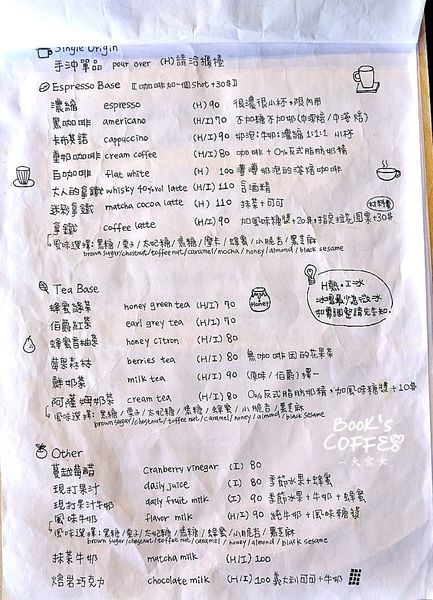 Single Origin
手沖單品 pour over (H) 請洽櫃檯
Espresso Base 〖咖啡加一個shot +30$〗
濃縮 espresso (H) 90 很濃很小杯,限內用
黑咖啡 americano (H/I) 70 不加糖不加奶(中深焙/中淺焙)
卡布其諾 cappuccino (H/I) 90 奶泡:牛奶:濃縮 1:1:1 小杯
重奶咖啡 cream coffee (H/I) 80 咖啡+0%反式脂肪奶精
白咖啡 flat white (H) 100 薄薄奶泡的深焙咖啡
大人的拿鐵 whisky 40%vol latte (H/I) 110 含酒精
迷彩拿鐵 matcha cocoa latte (H) 110 抹茶+可可
拿鐵 coffee latte (H/I) 90 加風味糖漿+20$,指定拉花圖案+30$
風味選擇:黑糖/栗子/太妃糖/焦糖/摩卡/蜂蜜/小脆杏/黑芝麻
brown sugar/chestnut/toffee nut/caramel/mocha/honey/almond/black sesame
H熱,I冰
Tea Base
蜂蜜綠茶 honey green tea (H/I) 70
Honey
伯爵紅茶 earl grey tea (H/I) 70
蜂蜜香柚茶 honey citron (H/I) 80
莓果森林 berries tea (H/I) 80 無咖啡因的花果茶
鮮奶茶 milk tea (H/I) 90 (原味/伯爵)擇一
阿薩姆奶茶 cream tea (H/I) 80 0%反式脂肪奶精,加風味糖漿+10$
風味選擇:黑糖/栗子/太妃糖/焦糖/蜂蜜/小脆杏/黑芝麻
brown sugar/chestnut/toffee nut/caramel/honey/almond/black sesame
BOOK'S
COFFEE
一大食女
Other
蔓越莓醋 Cranberry vinegar (I) 80
現打果汁 daily juice (I) 80 季節水果+蜂蜜
現打果汁牛奶 daily fruit milk (I) 90 季節水果+牛奶+蜂蜜
風味牛奶 flavor milk (H/I) 90 純牛奶+風味糖漿
風味選擇:黑糖/栗子/太妃糖/焦糖/蜂蜜/小脆杏/黑芝麻
brown sugar/chestnut/toffee nut/caramel/honey/almond/black sesame
抹茶牛奶 matcha milk (H/I) 100
焙岩巧克力 chocolate milk (H/I) 100 義大利可可+牛奶